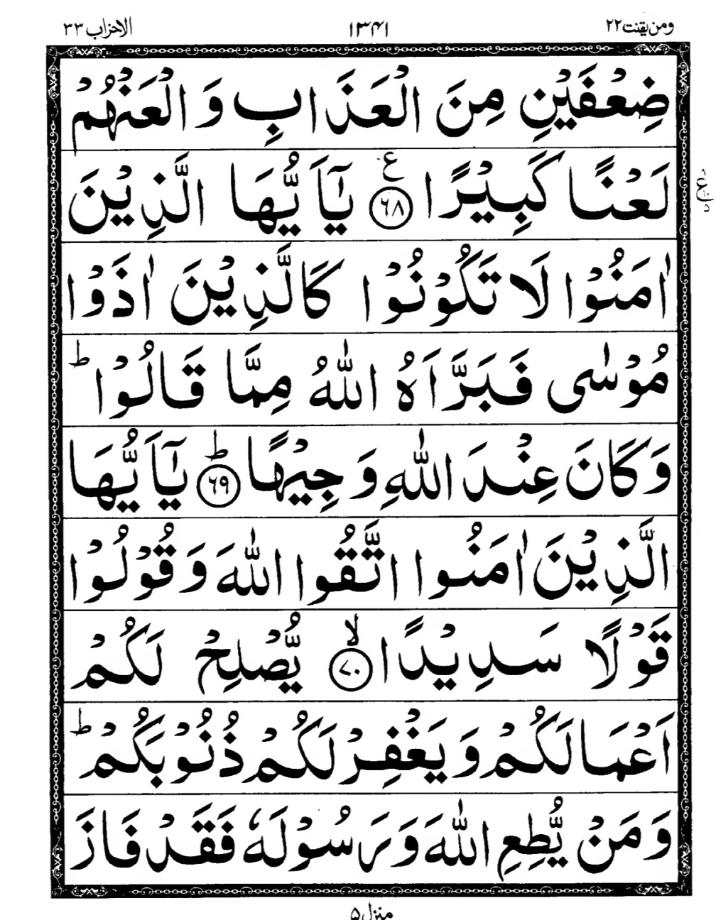 ومن يقنت ٢٢ ١٣٤١ الاحزاب ٣٣
ضِعْفَيْنِ مِنَ الْعَذَابِ وَ الْعَنْهُمْ
لَعْنًا كَبِيْرًا ﴿٦٨﴾ۧ يٰۤاَيُّهَا الَّذِيْنَ
اٰمَنُوْا لَا تَكُوْنُوْا كَالَّذِيْنَ اٰذَوْا
مُوْسٰى فَبَرَّاَهُ اللّٰهُ مِمَّا قَالُوْا ؕ
وَ كَانَ عِنْدَ اللّٰهِ وَجِيْهًا ﴿٦٩﴾ؕ يٰۤاَيُّهَا
الَّذِيْنَ اٰمَنُوا اتَّقُوا اللّٰهَ وَ قُوْلُوْا
قَوْلًا سَدِيْدًا ﴿٧٠﴾ۙ يُّصْلِحْ لَكُمْ
اَعْمَالَكُمْ وَ يَغْفِرْ لَكُمْ ذُنُوْبَكُمْ ؕ
وَ مَنْ يُّطِعِ اللّٰهَ وَ رَسُوْلَهٗ فَقَدْ فَازَ
منزل ٥